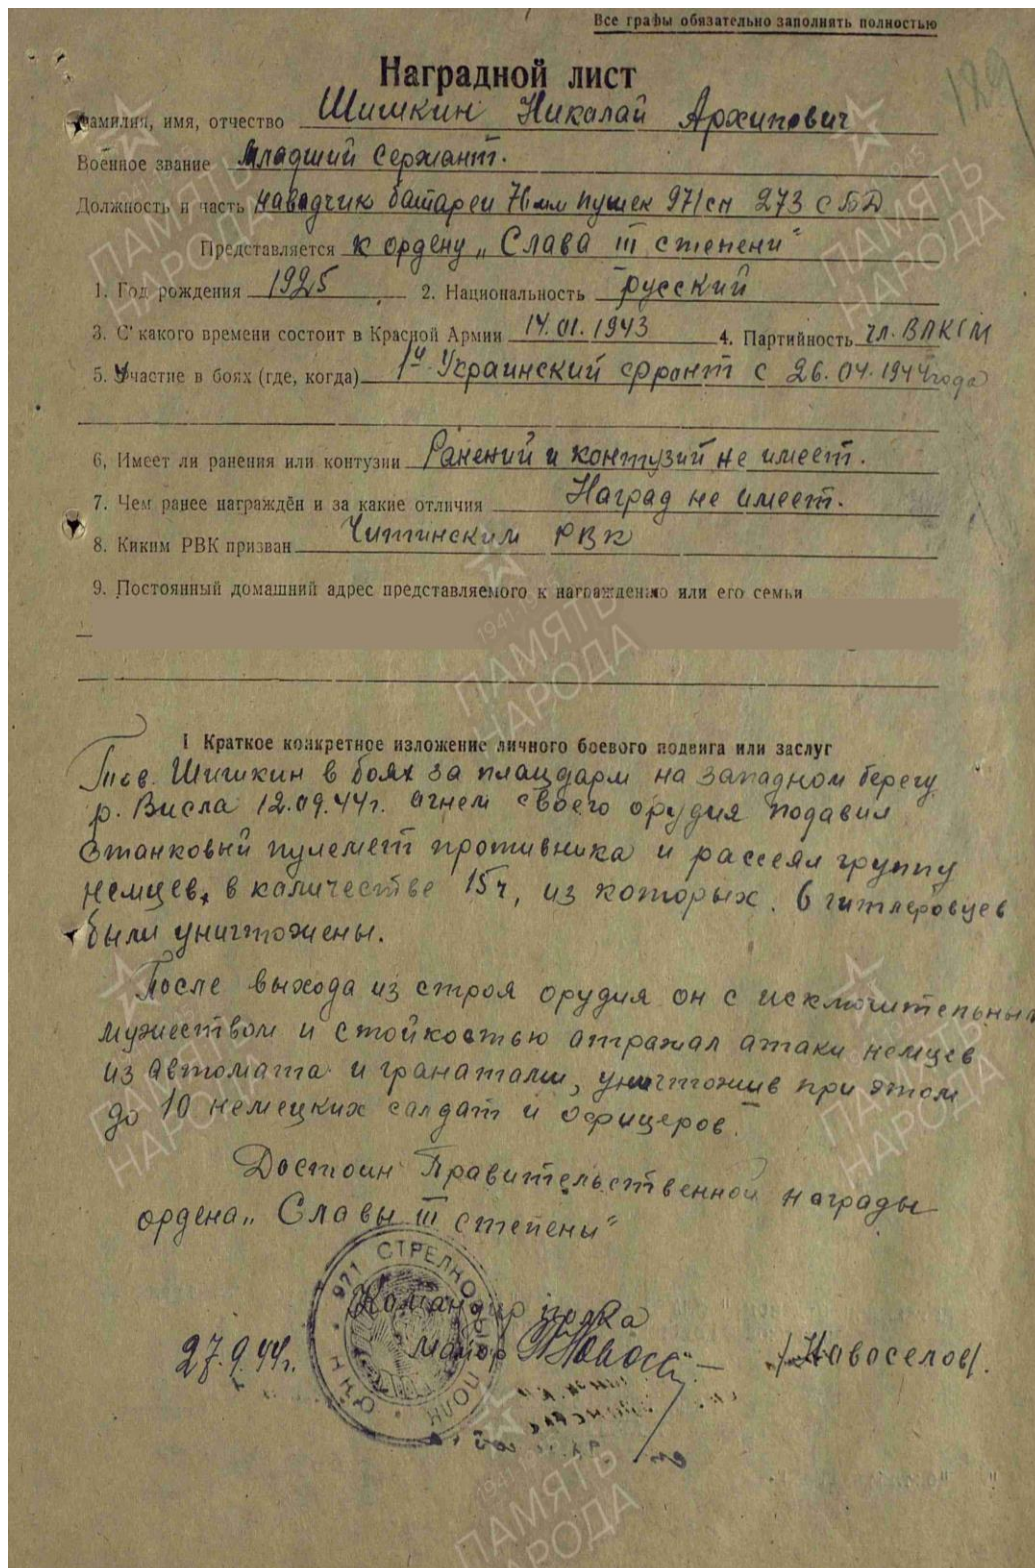 Все графы обязательно заполнять полностью
189
Наградной лист
Фамилия, имя, отчество Шишкин Николай Архипович
Военное звание Младший сержант.
Должность и часть наводчик батареи 76мм пушек 971сп 273 с БД
Представляется к ордену „Слава III степени"
1. Год рождения 1925 2. Национальность русский
3. С какого времени состоит в Красной Армии 14.01.1943 4. Партийность чл. ВЛКСМ
5. Участие в боях (где, когда) 1й Украинский фронт с 26.04.1944 года
6, Имеет ли ранения или контузии Ранений и контузий не имеет.
7. Чем ранее награждён и за какие отличия Наград не имеет.
8. Киким РВК призван Читинским РВК
9. Постоянный домашний адрес представляемого к награждению или его семьи
I Краткое конкретное изложение личного боевого подвига или заслуг
Тов. Шишкин в боях за плацдарм на западном берегу
р. Висла 12.09.44г. огнем своего орудия подавил
станковый пулемет противника и рассеял группу
немцев, в количестве 15ч, из которых 6 гитлеровцев
были уничтожены.
После выхода из строя орудия он с исключительным
мужеством и стойкостью атражал атаки немцев
из автомата и гранатами, уничтожив при этом
до 10 немецких салдат и офицеров.
Достоин Правительственной награды
ордена „Славы III степени"
971 СТРЕЛКОВЫЙ ПОЛК
Командир полка
27.9.44г. майор /Новоселов/.
ПАМЯТЬ НАРОДА
1941-1945